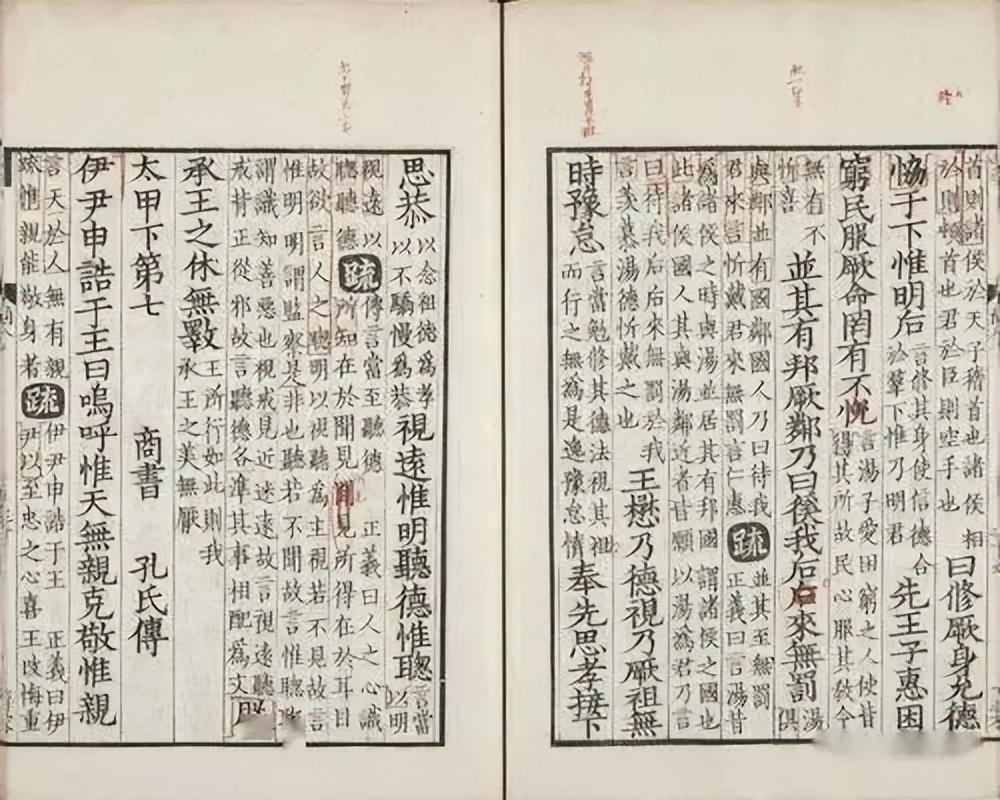 首則諸侯於天子稽首也諸侯相於則頓首也君於臣則空手也曰修厥身允德
協于下惟明后言修其身使信德合於羣下惟乃明君先王子惠困
窮民服厥命罔有不悅言湯子愛困窮之人使皆得其所故民心服其敎令
無有不忻喜並其有邦厥鄰乃曰徯我后后來無罰湯俱
與鄰並有國鄰國人乃曰待我君來言忻戴君來無罰言仁惠疏並其至無罰正義曰言湯昔
爲諸侯之時與湯並居其有邦國謂諸侯之國也此諸侯國人其與湯鄰近者皆願以湯爲君乃言
曰待我后后來無罰於我言羡慕湯德忻戴之也王懋乃德視乃厥祖無
時豫怠言當勉修其德法視其祖而行之無爲是逸豫怠情奉先思孝接下
思恭以念祖德爲孝以不驕慢爲恭視遠惟明聽德惟聰言當以明
視遠以聰聽德疏傳言當至聽德 正義曰人之心識所知在於聞見聞見所得在於耳目
故欲言人之聰明以視聽爲主視若不見故言惟明明謂監察是非也聽若不聞故言惟聰聰
謂識知善惡也視戒見近迷遠故言視遠聽戒背正從邪故言聽德各準其事相配爲文
承王之休無斁王所行如此則我承王之美無厭
太甲下第七 商書 孔氏傳
伊尹申誥于王曰嗚呼惟天無親克敬惟親
言天於人無有親疏惟親能敬身者疏伊尹申誥于王 正義曰伊尹以至忠之心喜王改悔重